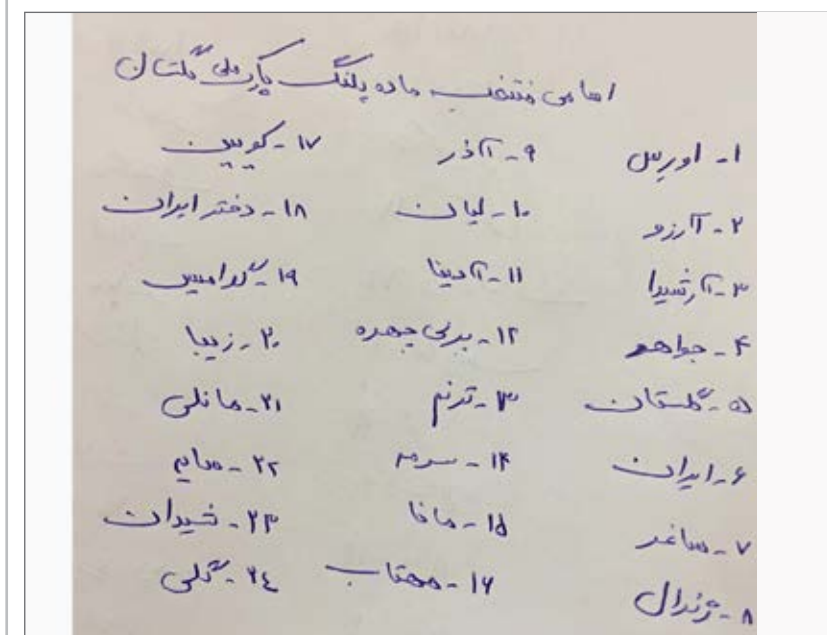 اسامی منتخب ماده پلنگ پارک ملی گلستان
۱- اورس
۲- آرزو
۳- آرشیدا
۴- جواهر
۵- گلستان
۶- ایران
۷- ساغر
۸- ژندال
۹- آذر
۱۰- لیان
۱۱- آدینا
۱۲- پری چهره
۱۳- ترنم
۱۴- سرمه
۱۵- مانا
۱۶- مهتاب
۱۷- کویین
۱۸- دختر ایران
۱۹-
۲۰- زیبا
۲۱- مانلی
۲۲-
۲۳- شیدان
۲۴- گلی